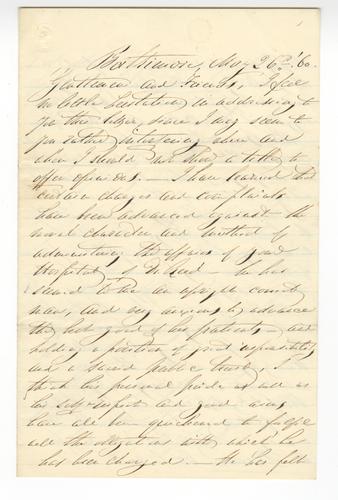 Baltimore, May 26th, '60.
Gentlemen and Friends, I feel
no little hesitation in addressing to
you this letter, since I may seem to
you rather interfering where and
when I should not show a title to
offer opinions. — I have learned that
certain charges and complaints
have been advanced against the
moral character and method of
administering the affairs of your
Hospital of Dr. — he has
seemed to me an upright correct
man, and very anxious to advance
the best good of his patients — and
holding a position of great responsibility
and a sacred public trust, I
think his personal pride as well as
his self-respect and good
have all been quickened to fulfil
all the obligations with which he
has been charged. — He has felt